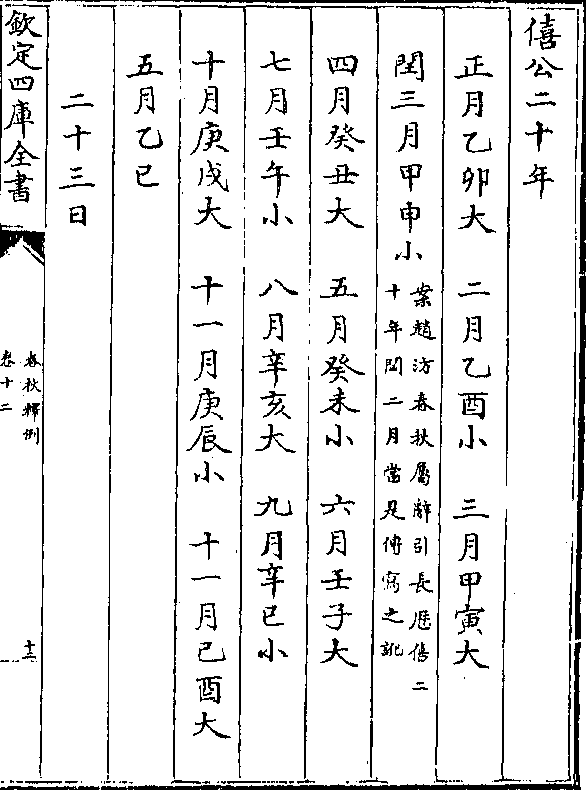 僖公二十年
正月乙卯大 二月乙酉小 三月甲寅大
閏三月甲申小 案趙汸春秋屬辭引長厯僖二
十年閏二月當是傳寫之訛
四月癸丑大 五月癸未小 六月壬子大
七月壬午小 八月辛亥大 九月辛巳小
十月庚戌大 十一月庚辰小 十一月己酉大
五月乙巳
二十三日
欽定四庫全書
春秋釋例
卷十二
十二